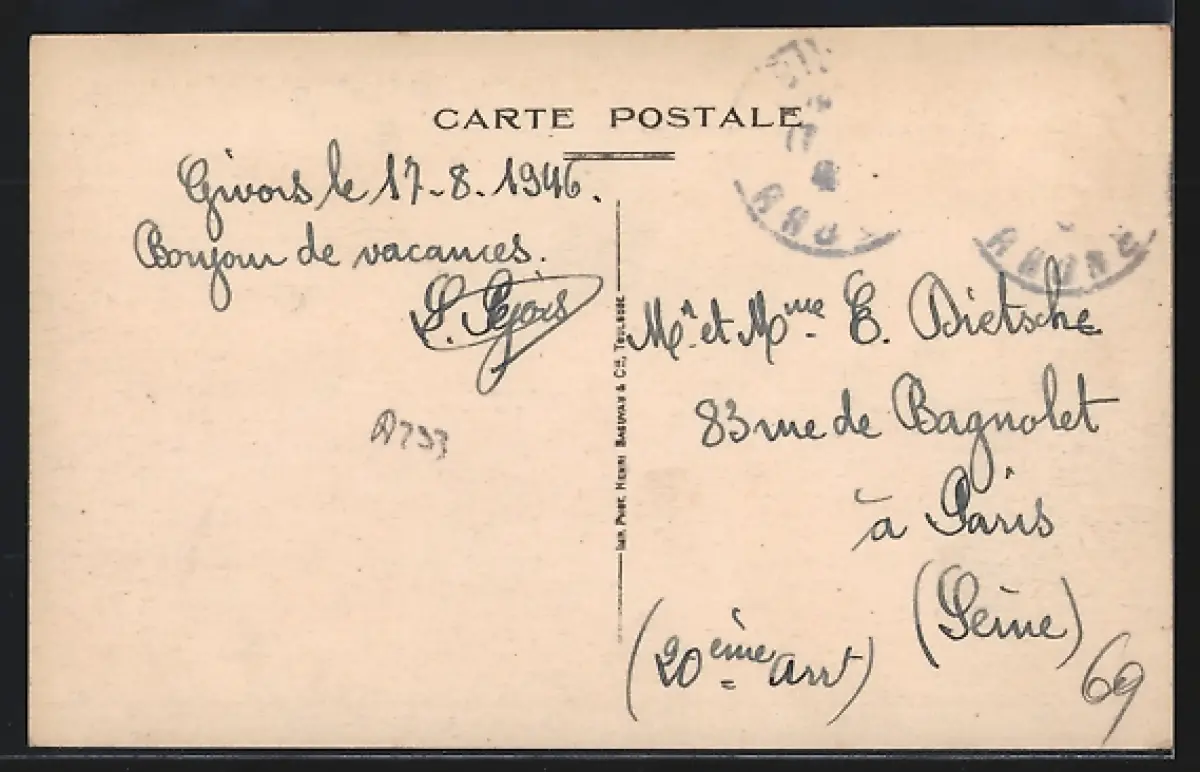 CARTE POSTALE
Givors le 17-8-1946.
Bonjour de vacances.
Mr et Mme E. Dietsche
83 rue de Bagnolet
à Paris
(Seine)
(20ème arrt)
69
IMP. PHOT. HENRI BASUYAU & Cie, TOULOUSE
17
RHO
RHONE